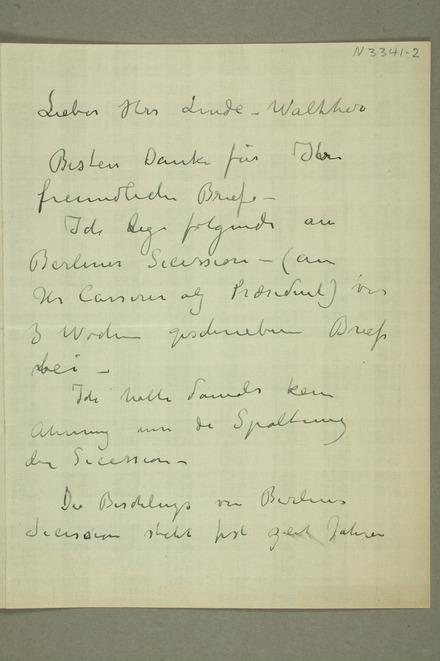 N 3341-2
Lieber Herr Linde-Walther
Besten Danke für Ihr
freundliche Brief –
Ich lege folgende an
Berliner Secession – (an
Hr Cassirer als Præsident) vor
3 Wochen geschriebene Brief
bei –
Ich hatte damals kein
Ahnung um die Spaltung
der Secession –
Die von Berliner
Secession steht fest Jahren